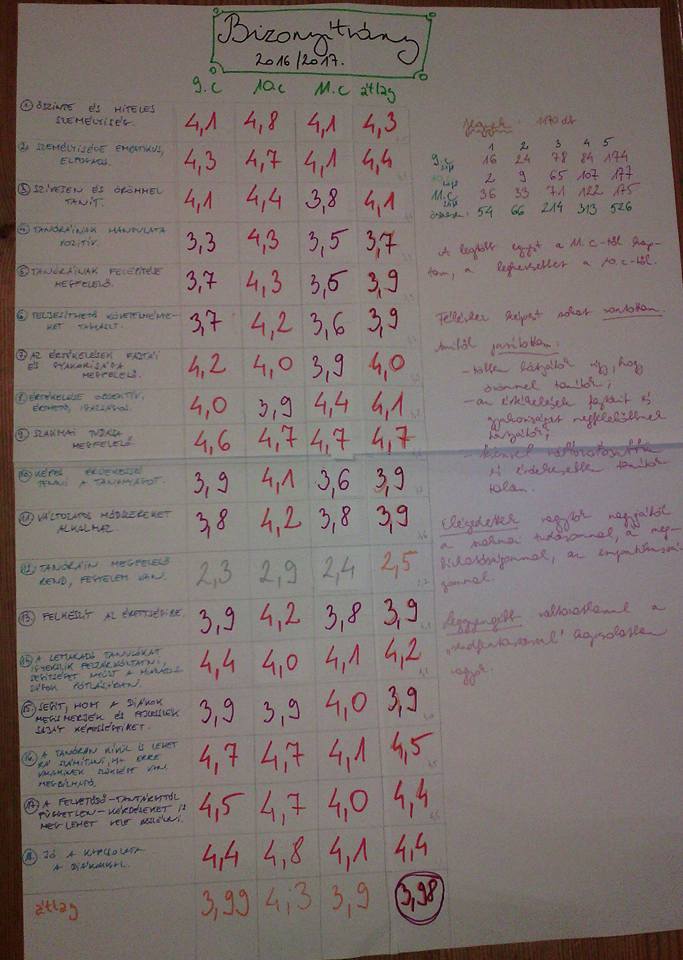 Bizonyítvány
2016/2017.
9.c 10.c 11.c átlag
1. ŐSZINTE ÉS HITELES
SZEMÉLYISÉG. 4,1 4,8 4,1 4,3
2. SZEMÉLYISÉGE EMPATIKUS,
ELFOGADÓ. 4,3 4,7 4,1 4,4
3. SZÍVESEN ÉS ÖRÖMMEL
TANÍT. 4,1 4,4 3,8 4,1
4. TANÓRÁINAK HANGULATA
POZITÍV. 3,3 4,3 3,5 3,7
5. TANÓRÁINAK FELÉPÍTÉSE
MEGFELELŐ. 3,7 4,3 3,6 3,9
6. TELJESÍTHETŐ KÖVETELMÉNYE-
KET TÁMASZT. 3,7 4,2 3,6 3,9
7. AZ ÉRTÉKELÉSEK FAJTÁI
ÉS GYAKORISÁGA
MEGFELELŐ. 4,2 4,0 3,9 4,0
8. ÉRTÉKELÉSE OBJEKTÍV,
ÉRTHETŐ, IGAZSÁGOS. 4,0 3,9 4,4 4,1
9. SZAKMAI TUDÁSA
MEGFELELŐ. 4,6 4,7 4,7 4,7
10. KÉPES ÉRDEKESSÉ
TENNI A TANANYAGOT. 3,9 4,1 3,6 3,9
11. VÁLTOZATOS MÓDSZEREKET
ALKALMAZ. 3,8 4,2 3,8 3,9
12. TANÓRÁIN MEGFELELŐ
REND, FEGYELEM VAN. 2,3 2,9 2,4 2,5
13. FELKÉSZÍT AZ ÉRETTSÉGIRE. 3,9 4,2 3,8 3,9
14. A LEMARADÓ TANULÓKAT
IGYEKSZIK FELZÁRKÓZTATNI,
SEGÍTSÉGET NYÚJT A HIÁNYOS-
SÁGOK PÓTLÁSÁBAN. 4,4 4,0 4,1 4,2
15. SEGÍT, HOGY A DIÁKOK
MEGISMERJÉK ÉS FEJLESSZÉK
SAJÁT KÉPESSÉGEIKET. 3,9 3,9 4,0 3,9
16. A TANÓRÁN KÍVÜL IS LEHET
RÁ SZÁMÍTANI, HA ERRE
VALAKINEK SZÜKSÉGE VAN,
MEGBÍZHATÓ. 4,7 4,7 4,1 4,5
17. A FELMERÜLŐ - TANTÁRGYTÓL
FÜGGETLEN - KÉRDÉSEKET IS
MEG LEHET VELE BESZÉLNI. 4,5 4,7 4,0 4,4
18. JÓ A KAPCSOLATA
A DIÁKOKKAL. 4,4 4,8 4,1 4,4
átlag 3,99 4,3 3,9 3,98
1170 db
1 2 3 4 5
9.c 16 24 78 84 174
2 9 65 107 177
11.c 36 33 71 122 175
54 66 214 313 526
A legtöbb egyest a 11.c-től kap-
tam, a legkevesebbet a 10.c-től.
Félévhez képest sokat rontottam.
Amiből javítottam:
- többen látják úgy, hogy
örömmel tanítok;
- az értékelések fajtáit és
gyakoriságát megfelelőbbnek
tartják;
- kicsivel változatosabban
és érdekesebben tanítok
talán.
Elégedettek vagytok nagyjából
a szakmai tudásommal, a meg-
bízhatóságommal, az empatikussá-
gommal.
Leggyengébb változatlanul a
"rendfenntartással" kapcsolatban
vagyok.